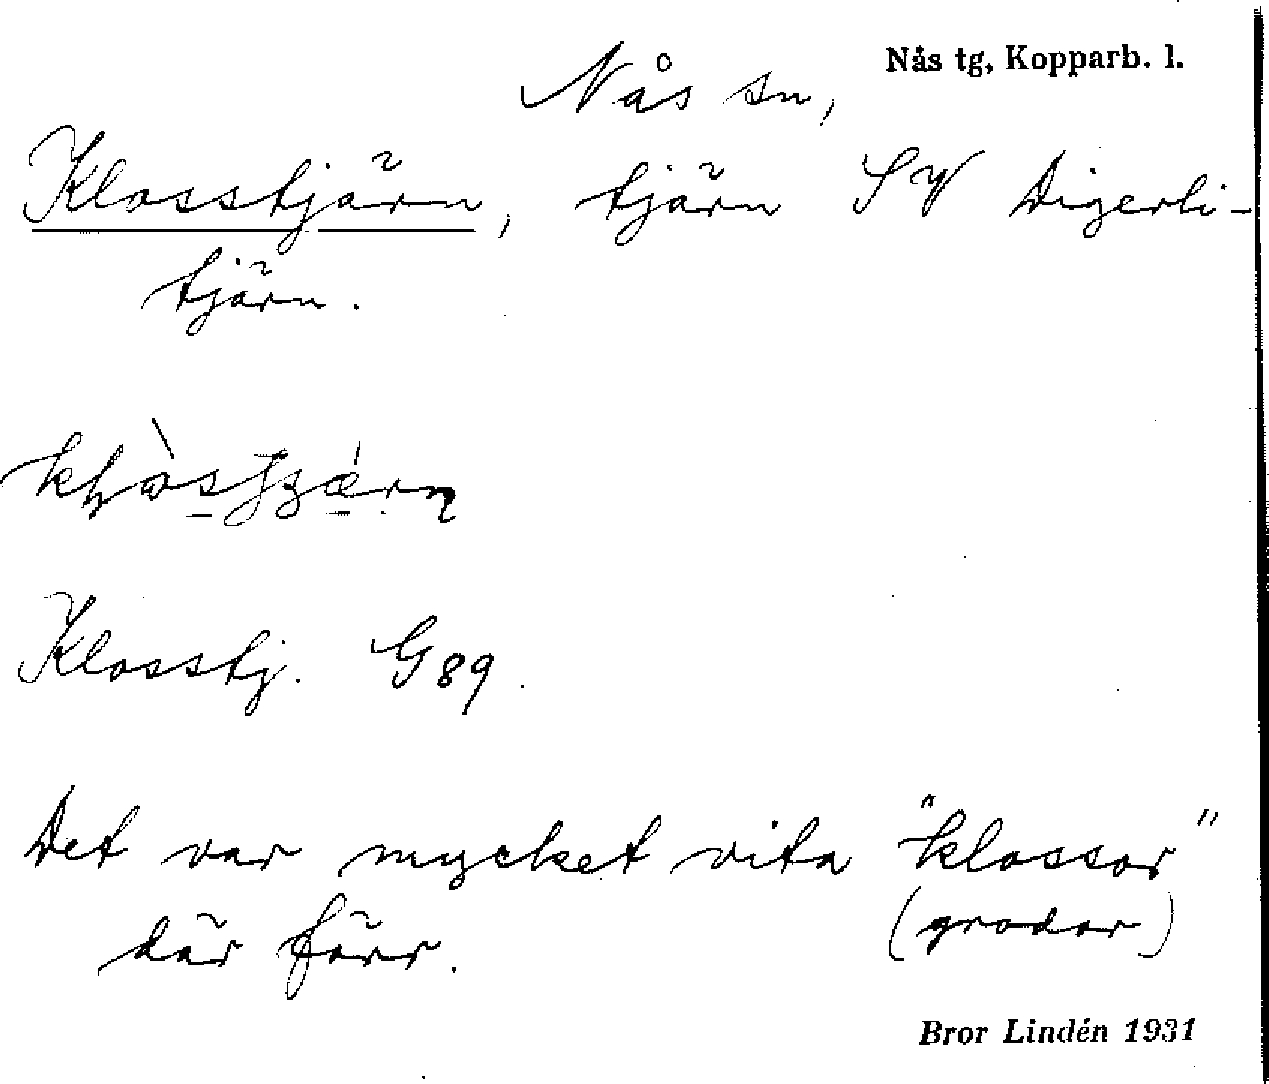 Nås tg, Kopparb. l.
Nås sn,
Klosstjärn, tjärn SV Digerli-
tjärn.
Klosstj. G89.
Det var mycket vita "klossor"
där förr. (grodor)
Bror Lindén 1931